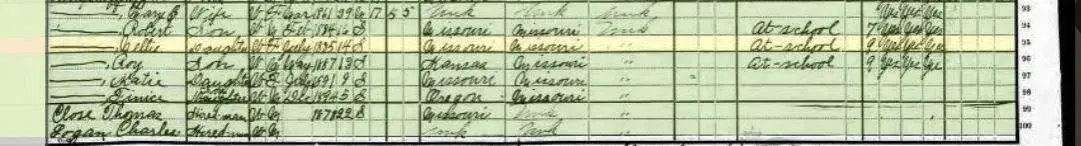 ——, Mary E Wife W F Mar 1861 39 M 17 5 5 Unk Unk Unk Yes Yes Yes 93
——, Robert Son W M Feb 1884 16 S Missouri Missouri Unk At-school 7 Yes Yes Yes 94
——, Daughter W F July 1885 14 S Missouri Missouri " At-school 9 Yes Yes Yes 95
——, Roy Son W M May 1887 13 S Kansas Missouri " At-school 9 Yes Yes Yes 96
——, Katie Daughter W F July 1891 9 S Missouri Missouri " 97
——, W Dec 1894 5 S Oregon Missouri " 98
Close Thomas Hired-man W M 1878 22 S Missouri Unk " 99
Logan Charles Hired-man W M Unk Unk " 100